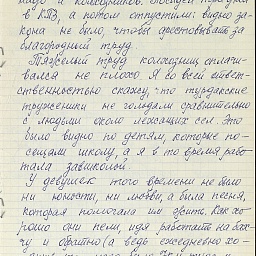 надо а колодников. Посидел
в КПЗ, а потом отпустили: видно за-
кона не было, чтобы арестовывать за
благородный труд.
Тяжелый труд колхозниц оплачи-
вался не плохо. Я со всей ответ-
ственностью скажу, что турдакские
труженики не голодали сравнительно
с людьми около лежащих сел. Это
было видно по детям, которые по-
сещали школу, а я в то время рабо-
тала завшколой.
У девушек того времени не было
ни юности, ни любви, а была песня,
которая помогала им жить. Как хо-
рошо они пели, идя работать на бах-
чу и обратно (а ведь ежедневно хо-